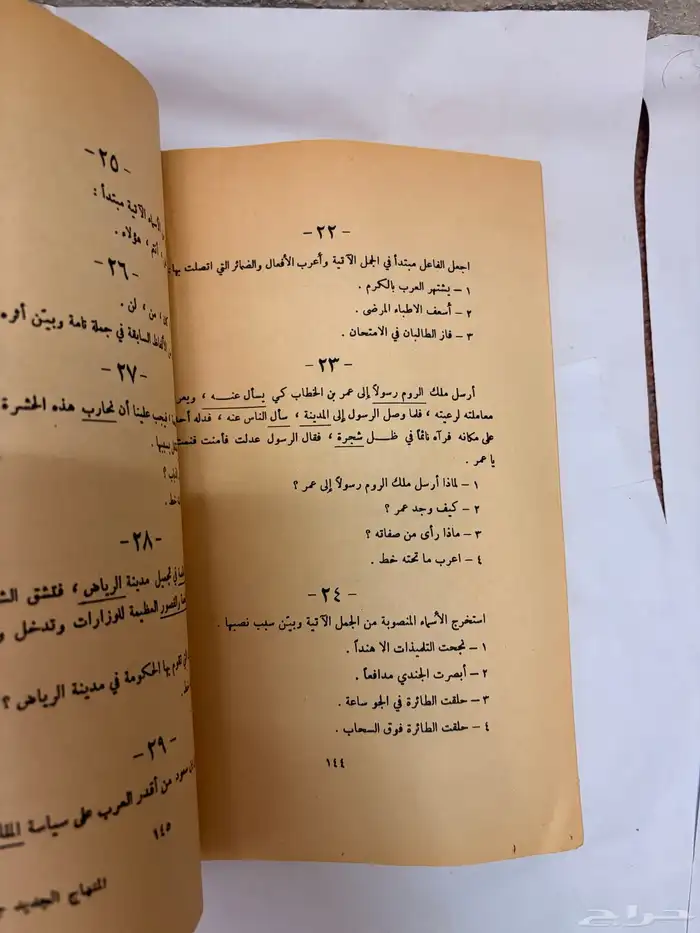 - ٢٢ -
اجعل الفاعل مبتدأ في الجمل الآتية وأعرب الأفعال والضمائر التي اتصلت بها
١ - يشتهر العرب بالكرم .
٢ - أسعف الاطباء المرضى .
٣ - فاز الطالبان في الامتحان .
- ٢٣ -
أرسل ملك الروم رسولاً إلى عمر بن الخطاب كي يسأل عنه ،
معاملته لرعيته ، فلما وصل الرسول إلى المدينة ، سأل الناس عنه ، فدله
على مكانه فرآه نائماً في ظل شجرة ، فقال الرسول عدلت فأمنت
يا عمر .
١ - لماذا أرسل ملك الروم رسولاً إلى عمر ؟
٢ - كيف وجد عمر ؟
٣ - ماذا رأى من صفاته ؟
٤ - اعرب ما تحته خط .
- ٢٤ -
استخرج الأسماء المنصوبة من الجمل الآتية وبيّن سبب نصبها .
١ - نجحت التلميذات الا هنداً .
٢ - أبصرت الجندي مدافعاً .
٣ - حلقت الطائرة في الجو ساعة .
٤ - حلقت الطائرة فوق السحاب .
١٤٤
- ٢٥ -
الأسماء الآتية مبتدأ :
أنتم ، هؤلاء .
- ٢٦ -
من ، لن .
السابقة في جملة تامة وبيّن أثره
- ٢٧ -
فيجب علينا أن نحارب هذه الحشرة
خط .
- ٢٨ -
في تجميل مدينة الرياض ، فتشق
العظيمة للوزارات وتدخل
تقوم بها الحكومة في مدينة الرياض ؟
- ٢٩ -
سعود من أقدر العرب على سياسة
١٤٥
المنهاج الجديد
حراج